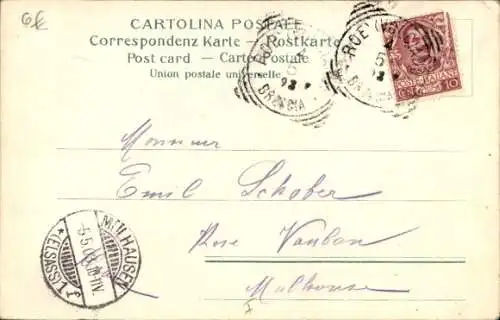 6€
CARTOLINA POSTALE
Correspondenz Karte — Postkarte
Post card — Carte Postale
Union postale universelle
BRESCIA
BRESCIA
POSTE ITALIANE
CENT 10
Monsieur
Emil Schober
Rue Vauban
Mulhouse
MÜLHAUSEN
(ELSASS)